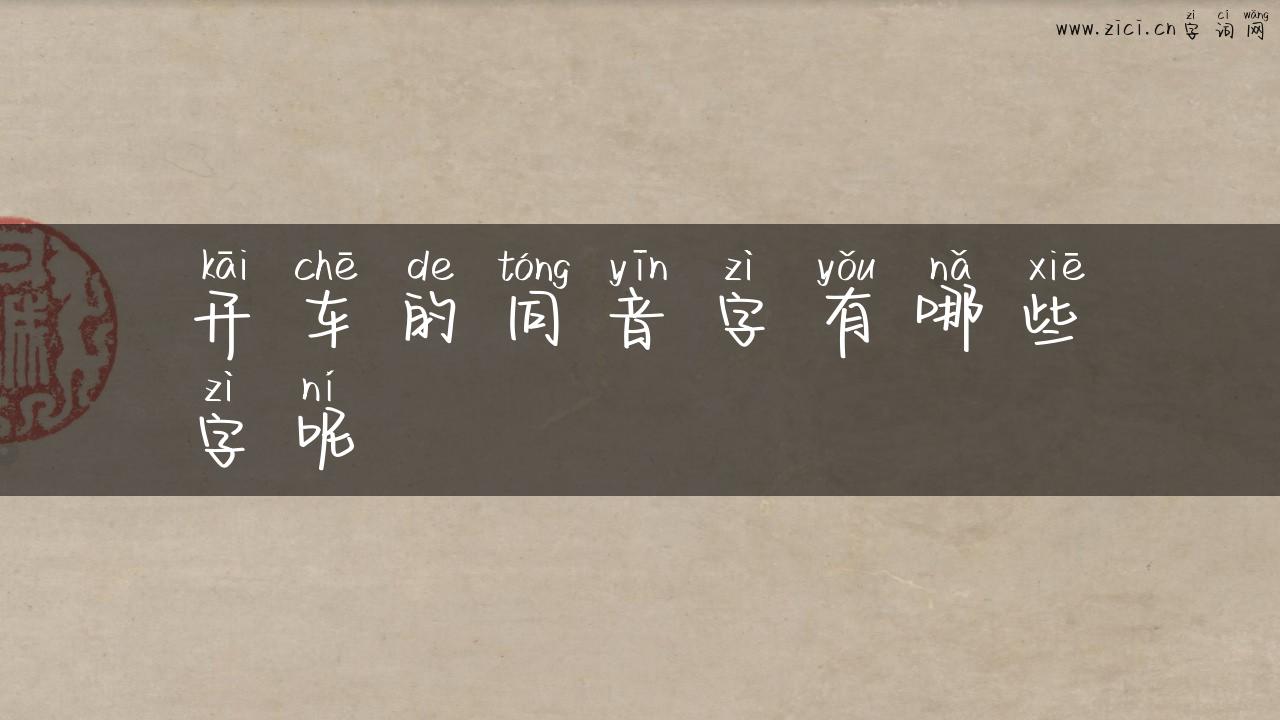 zì cí wǎng
www.zici.cn 字词网
kāi chē de tóng yīn zì yǒu nǎ xiē
开车的同音字有哪些
zì ní
字呢